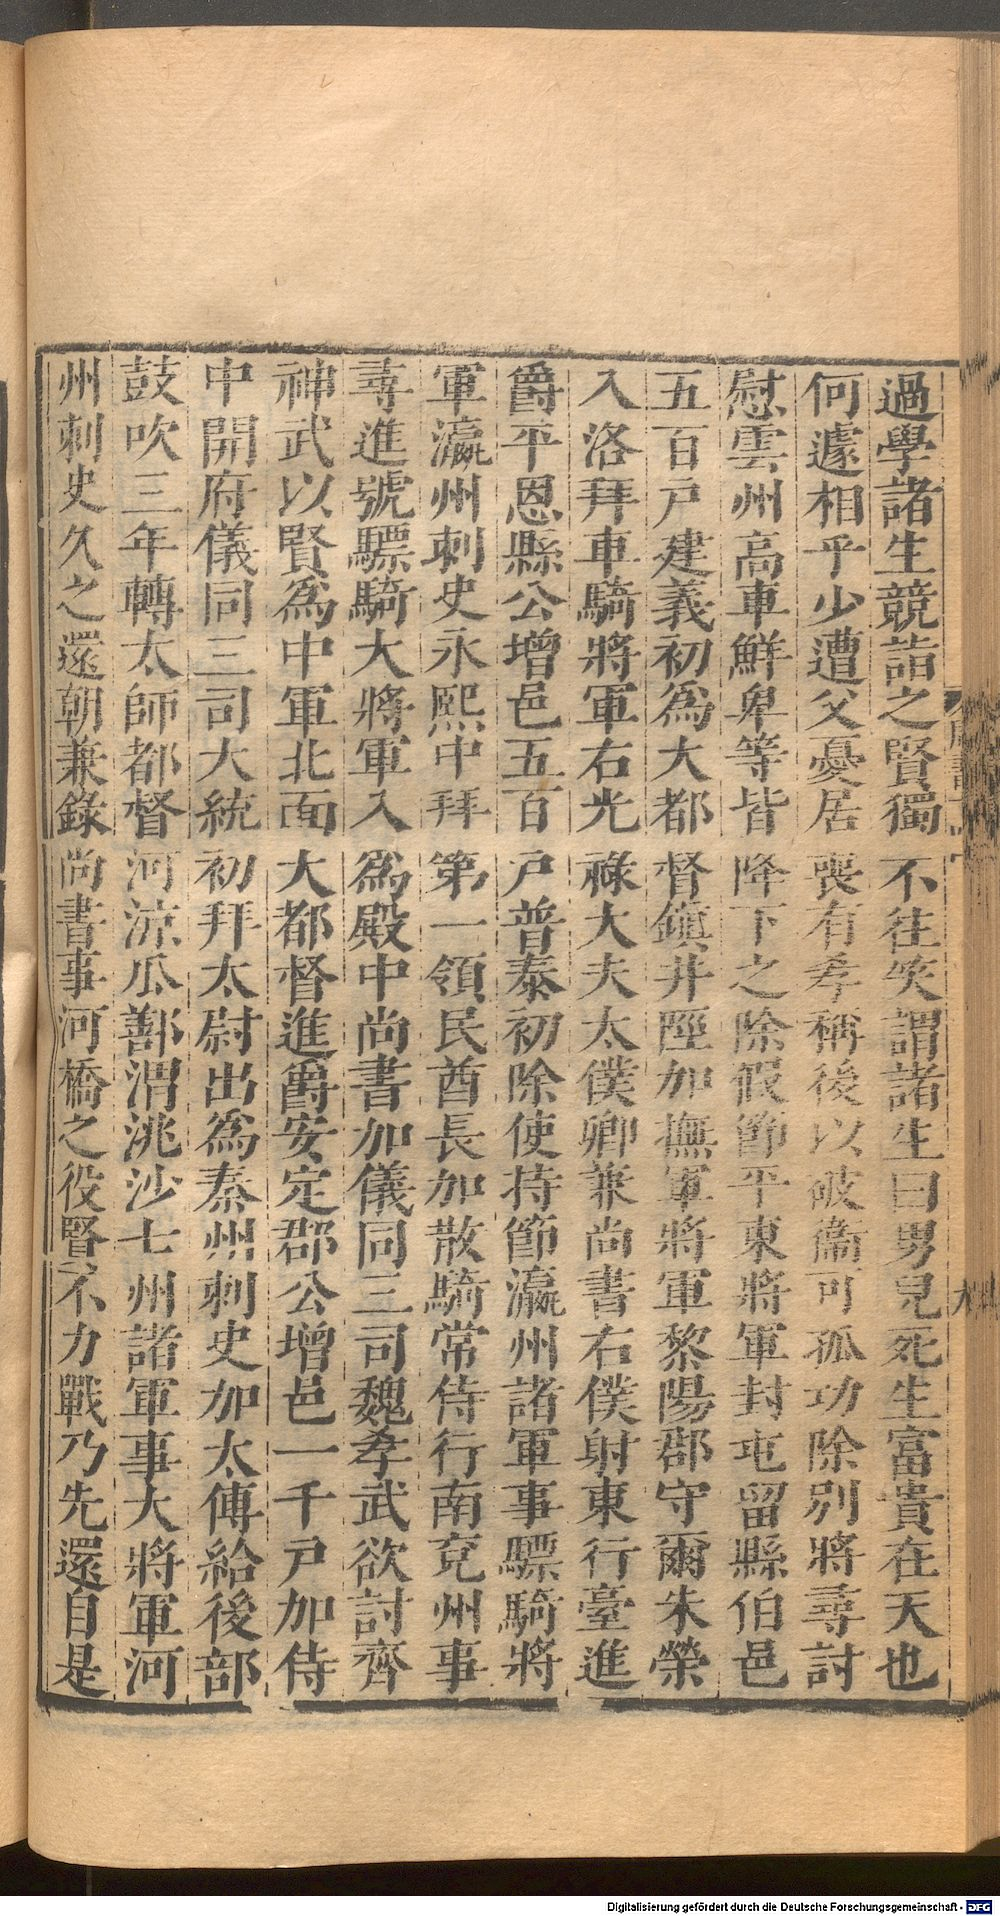 過學諸生競詣之賢獨不往笑謂諸生曰男兒死生富貴在天也
何遽相乎少遭父憂居喪有孝稱後以破衞可孤功除別將尋討
慰雲州高車鮮卑等皆降下之除假節平東將軍封屯留縣伯邑
五百戸建義初爲大都督鎭井陘加撫軍將軍黎陽郡守爾朱榮
入洛拜車騎將軍右光祿大夫太僕卿兼尚書右僕射東行臺進
爵平恩縣公增邑五百戸普泰初除使持節瀛州諸軍事驃騎將
軍瀛州刺史永熙中拜第一領民酋長加散騎常侍行南兗州事
尋進號驃騎大將軍入爲殿中尚書加儀同三司魏孝武欲討齊
神武以賢爲中軍北面大都督進爵安定郡公增邑一千戸加侍
中開府儀同三司大統初拜太尉出爲秦州刺史加太傅給後部
鼓吹三年轉太師都督河涼瓜鄯渭洮沙七州諸軍事大將軍河
州刺史久之還朝兼錄尚書事河橋之役賢不力戰乃先還自是
Digitalisierung gefördert durch die Deutsche Forschungsgemeinschaft - DFG